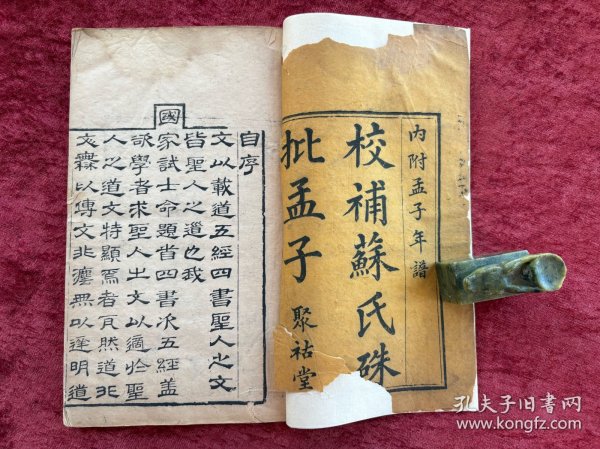 內附孟子年譜
校補蘇氏硃
批孟子
聚祜堂
自序
文以載道五經四書聖人之文
皆聖人之道也我
國家試士命題首四書次五經蓋
欲學者求聖人之文以適於聖
人之道文特顯焉者耳然道非
文以傳文非無以達明道
孔夫子旧书网
www.kongfz.com